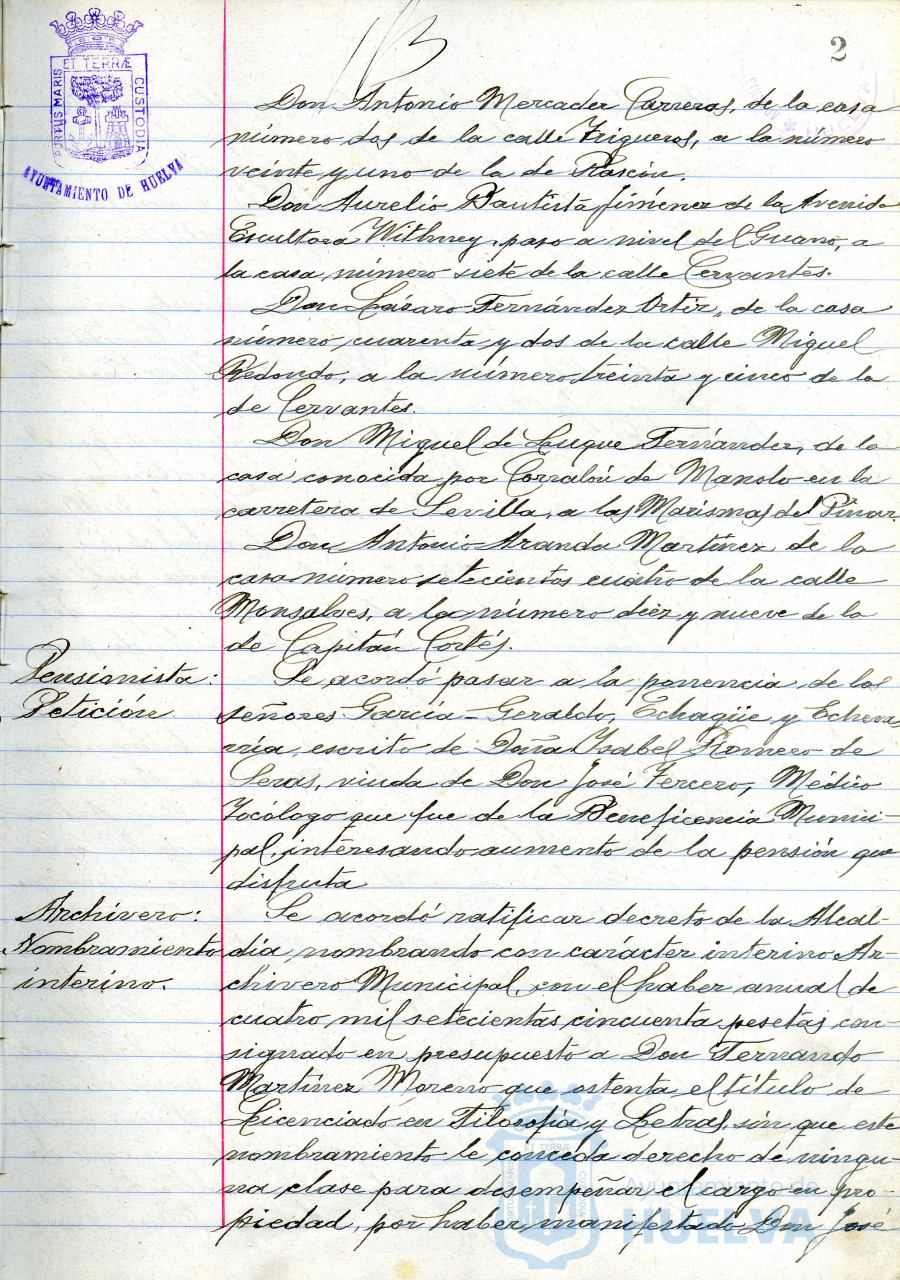 2
PORTUS MARIS ET TERRÆ CUSTODIA
AYUNTAMIENTO DE HUELVA
Don Antonio Mercader Carreras, de la casa
número dos de la calle Trigueros, a la número
veinte y uno de la de Rascón.
Don Aurelio Bautista Jiménez de la Avenida
Escultora Withney, paso a nivel del Guano, a
la casa número siete de la calle Cervantes.
Don Lázaro Fernández Ortiz, de la casa
número, cuarenta y dos de la calle Miguel
Redondo, a la número treinta y cinco de la
de Cervantes.
Don Miguel de Luque Fernández, de la
casa conocida por Corralón de Manolo en la
carretera de Sevilla, a las Marismas del Pinar.
Don Antonio Aranda Martínez de la
casa número setecientos cuatro de la calle
Monsalves, a la número diez y nueve de la
de Capitán Cortés.
Pensionista:
Petición
Se acordó pasar a la ponencia de los
señores García-Geraldo, Echagüe y Echeva-
rría, escrito de Doña Ysabel Romero de
Seras, viuda de Don José Tercero, Médico
Tocólogo que fue de la Beneficencia Munici-
pal, interesando aumento de la pensión que
disfruta
Archivero:
Nombramiento
interino.
Se acordó ratificar decreto de la Alcal-
día, nombrando con carácter interino Ar-
chivero Municipal, con el haber anual de
cuatro mil setecientas cincuenta pesetas con-
signado en presupuesto a Don Fernando
Martínez Moreno que ostenta el título de
Licenciado en Filosofía y Letras, sin que este
nombramiento le conceda derecho de ningu-
na clase para desempeñar el cargo en pro-
piedad, por haber manifestado Don José
Ayuntamiento de
HUELVA